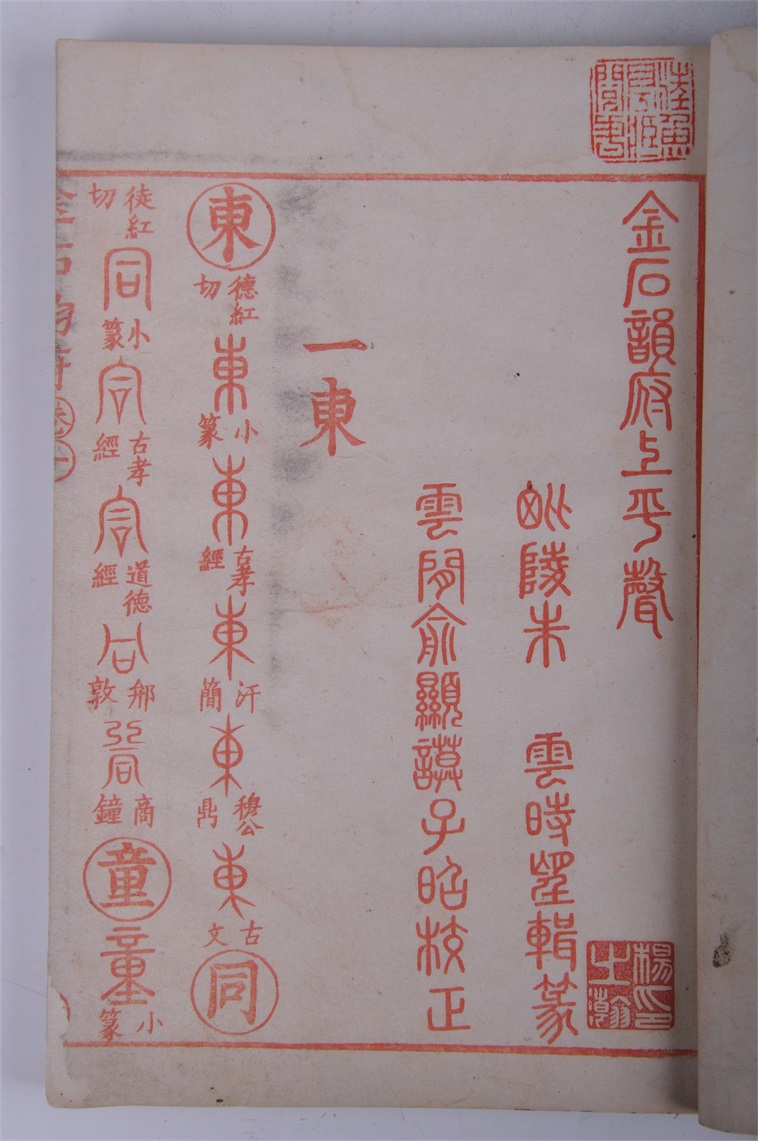 金石韻府上平聲
毗陵朱 雲時望輯篆
雲間俞顯謨子昭校正
一東
東 德紅切 東 小篆 東 古孝經 東 汗簡 東 穆公鼎 東 古文 同
徒紅切 同 小篆 同 古孝經 同 道德經 同 䢵敦 同 商鐘 童 童 小篆